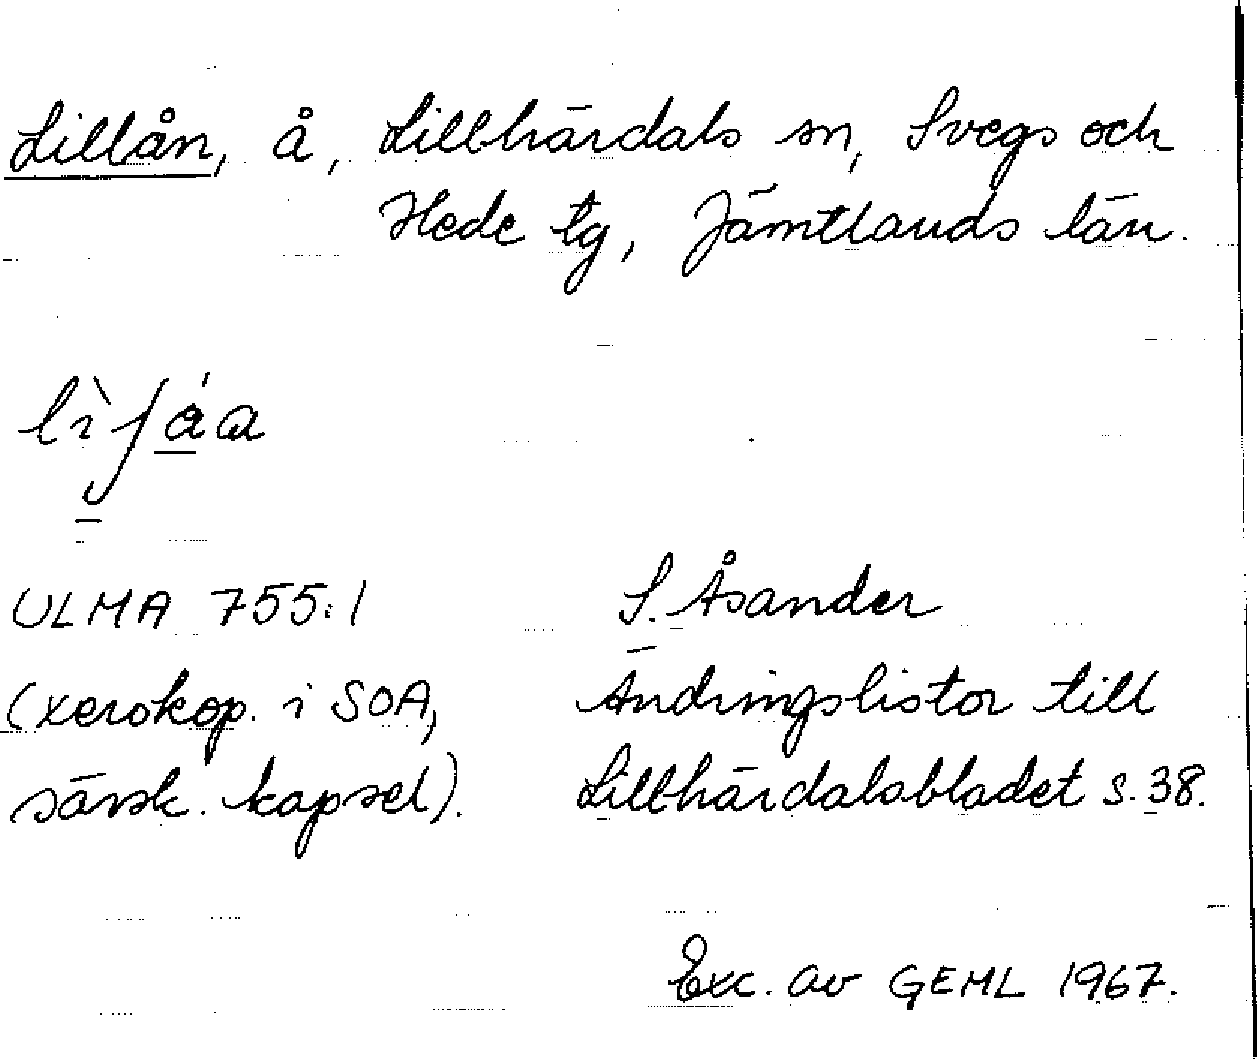 Lillån, å, Lillhärdals sn, Svegs och
Hede tg, Jämtlands län.
ULMA 755:1 S. Åsander
(xerokop. i SOA, Ändringslistor till
särsk. kapsel). Lillhärdalsbladet s. 38.
Exc. av GEML 1967.